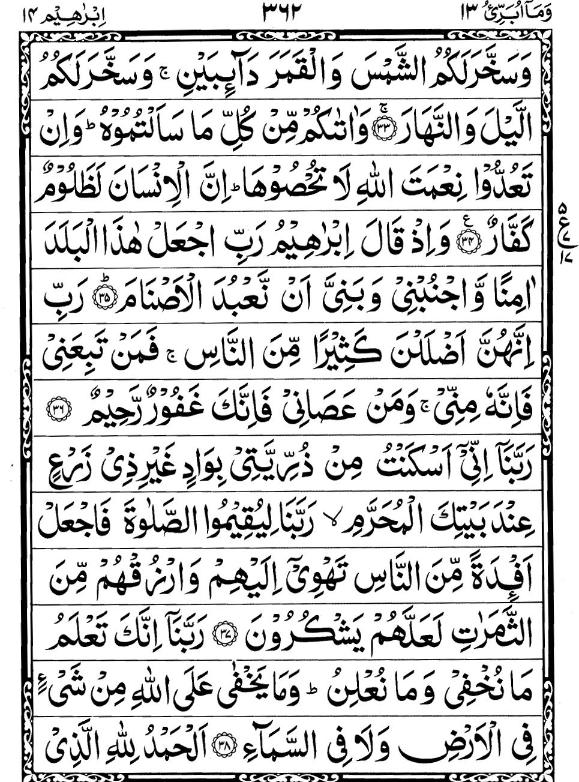 وَمَآ اُبَرِّئُ ١٣ ٣٦٢ اِبْرٰهِيْم ١٤
وَسَخَّرَ لَكُمُ الشَّمْسَ وَالْقَمَرَ دَآئِبَيْنِ ۚ وَسَخَّرَ لَكُمُ
الَّيْلَ وَالنَّهَارَ ۚ ﴿٣٣﴾ وَاٰتٰىكُمْ مِّنْ كُلِّ مَا سَاَلْتُمُوْهُ ؕ وَاِنْ
تَعُدُّوْا نِعْمَتَ اللّٰهِ لَا تُحْصُوْهَا ؕ اِنَّ الْاِنْسَانَ لَظَلُوْمٌ
كَفَّارٌ ﴿٣٤﴾ ع وَاِذْ قَالَ اِبْرٰهِيْمُ رَبِّ اجْعَلْ هٰذَا الْبَلَدَ
اٰمِنًا وَّاجْنُبْنِيْ وَبَنِيَّ اَنْ نَّعْبُدَ الْاَصْنَامَ ؕ ﴿٣٥﴾ رَبِّ
اِنَّهُنَّ اَضْلَلْنَ كَثِيْرًا مِّنَ النَّاسِ ۚ فَمَنْ تَبِعَنِيْ
فَاِنَّهٗ مِنِّيْ ۚ وَمَنْ عَصَانِيْ فَاِنَّكَ غَفُوْرٌ رَّحِيْمٌ ﴿٣٦﴾
رَبَّنَآ اِنِّيْٓ اَسْكَنْتُ مِنْ ذُرِّيَّتِيْ بِوَادٍ غَيْرِ ذِيْ زَرْعٍ
عِنْدَ بَيْتِكَ الْمُحَرَّمِ ۙ رَبَّنَا لِيُقِيْمُوا الصَّلٰوةَ فَاجْعَلْ
اَفْئِدَةً مِّنَ النَّاسِ تَهْوِيْٓ اِلَيْهِمْ وَارْزُقْهُمْ مِّنَ
الثَّمَرٰتِ لَعَلَّهُمْ يَشْكُرُوْنَ ﴿٣٧﴾ رَبَّنَآ اِنَّكَ تَعْلَمُ
مَا نُخْفِيْ وَمَا نُعْلِنُ ؕ وَمَا يَخْفٰى عَلَى اللّٰهِ مِنْ شَيْءٍ
فِي الْاَرْضِ وَلَا فِي السَّمَآءِ ﴿٣٨﴾ اَلْحَمْدُ لِلّٰهِ الَّذِيْ